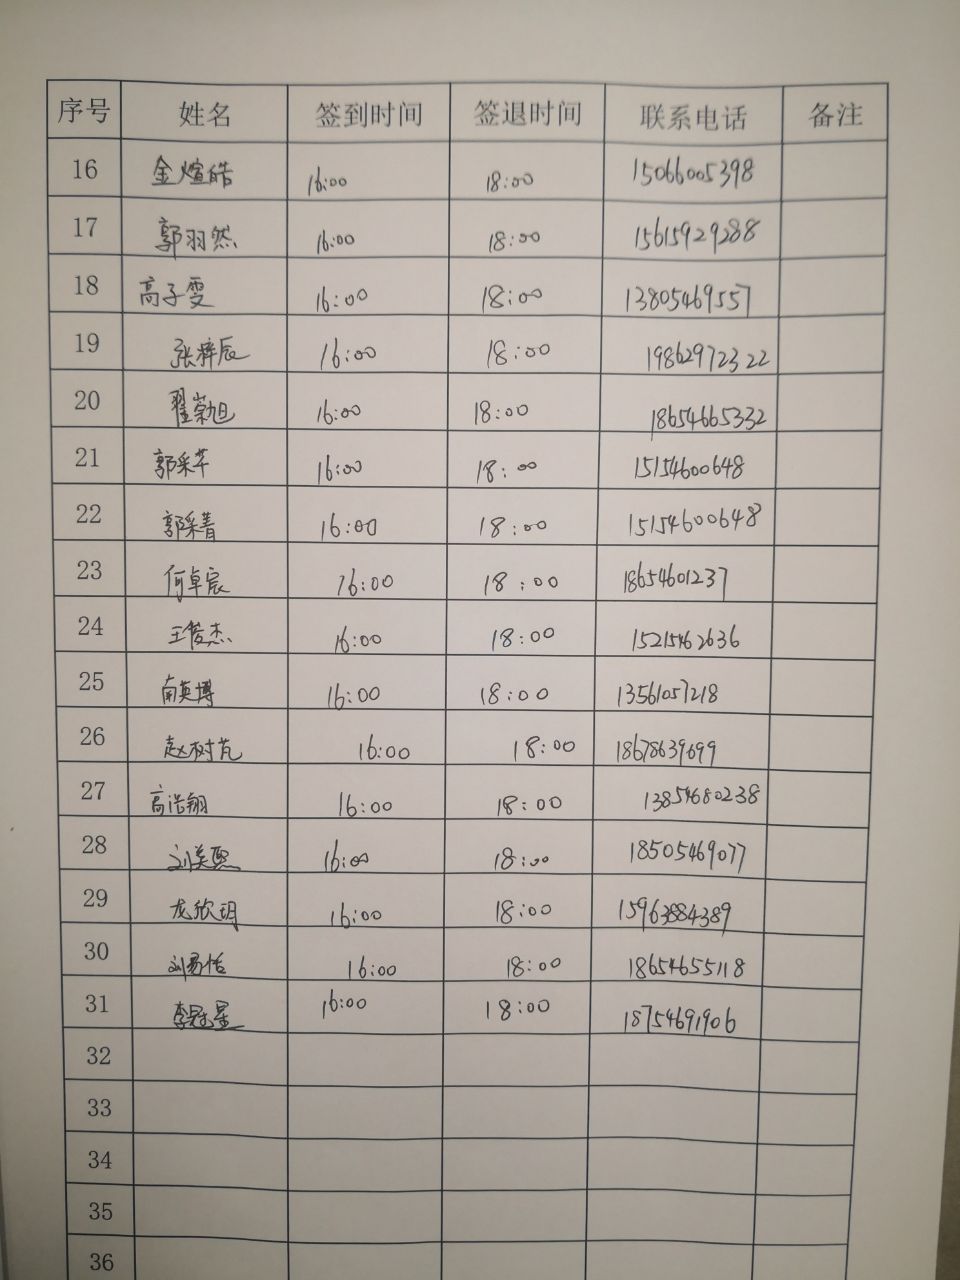 序号 姓名 签到时间 签退时间 联系电话 备注
16 金煊皓 16:00 18:00 15066005398
17 郭羽然 16:00 18:00 15615929288
18 高子雯 16:00 18:00 13805469557
19 张梓辰 16:00 18:00 19862972322
20 翟崇旭 16:00 18:00 18654665332
21 郭采芊 16:00 18:00 15154600648
22 郭采菁 16:00 18:00 15154600648
23 何卓宸 16:00 18:00 18654601237
24 王俊杰 16:00 18:00 15215462636
25 南英博 16:00 18:00 13561057218
26 赵树芃 16:00 18:00 18678639699
27 高浩翔 16:00 18:00 13854680238
28 刘美熙 16:00 18:00 18505469077
29 龙欣玥 16:00 18:00 15963884389
30 刘易恬 16:00 18:00 18654655118
31 李冠星 16:00 18:00 18754691906
32
33
34
35
36